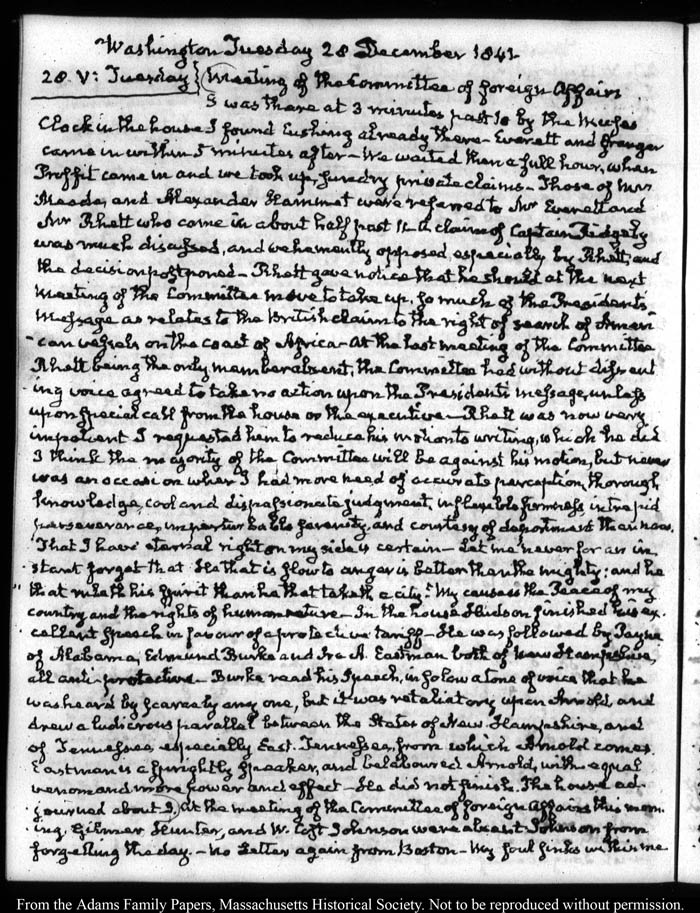 Washington Tuesday 28 December 1841
28. V: Tuesday} Meeting of the Committee of foreign Affairs
I was there at 3 minutes past 10 by the
Clock in the house I found Cushing already there - Everett and Granger
came in within 5 minutes after - We waited then a full hour, when
Proffit came in and we took up sundry private claims - Those of Mrs
Meade, and Alexander Hammet were referred to Mr Everett and
Mr Rhett who came in about half past 11. A claim of Captain Ridgely
was much discussed, and vehemently opposed especially by Rhett, and
the decision postponed - Rhett gave notice that he should at the next
meeting of the Committee move to take up, so much of the Presidents
Message as relates to the British claim to the right of search of Ameri-
-can vessels on the coast of Africa - At the last meeting of the Committee
Rhett being the only member absent, the Committee had without dissent-
ing voice agreed to take no action upon the Presidents message, unless
upon special call from the house or the executive - Rhett was now very
impatient I requested him to reduce his motion to writing, which he did
I think the majority of the Committee will be against his motion, but never
was an occasion when I had more need of accurate perception, thorough
knowledge, cool and dispassionate judgment, inflexible firmness, intrepid
perseverance, imperturbable serenity, and courtesy of deportment than now.
That I have eternal right on my side is certain - Let me never for an in-
stant forget that "He that is slow to anger is better than the mighty; and he
"that ruleth his spirit than he that taketh a city." My cause is the Peace of my
country and the rights of human nature - In the house Hudson finished his ex-
cellent speech in favour of a protective tariff - He was followed by Payne
of Alabama, Edmund Burke and Ira A. Eastman both of New Hampshire,
all anti-protective - Burke read his speech, in so low a tone of voice that he
was heard by scarcely any one, but it was retaliatory upon Arnold, and
drew a ludicrous parallel between the States of New-Hampshire, and
of Tennessee, especially East-Tennessee, from which Arnold comes.
Eastman is a sprightly speaker, and belaboured Arnold, with equal
venom and more power and effect - He did not finish. The house ad-
journed about 3. At the meeting of the Committee of foreign affairs this morn-
ing. Gilmer Hunter, and W. Cost Johnson were absent Johnson from
forgetting the day. - No Letter again from Boston - My soul sinks within me
From the Adams Family Papers, Massachusetts Historical Society. Not to be reproduced without permission.